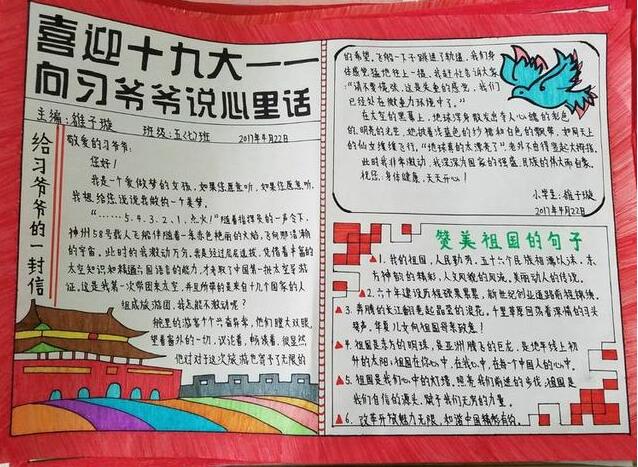 喜迎十九大——
向习爷爷说心里话
主编:雒子璇 班级:五(七)班 2017年4月22日
给习爷爷的一封信
敬爱的习爷爷:
您好!
我是一个爱做梦的女孩,如果您愿意听,如果您愿意听,
我想给您说说我做的一个美梦。
“……5.4.3.2.1.点火!”随着指挥员的一声令下,
神州58号载人飞船伴随着一条赤色艳丽的火焰,飞向那清澈
的宇宙。此时的我激动万分,我是经过层层选拔,凭借着丰富的
太空知识和精通六国语言的能力,才来取了中国第一批太空导游
证。这是我第一次带团来太空,并且所带的是来自十九个国家的人
组成旅游团,我怎能不激动呢?
舱里的游客个个兴奋异常,他们瞪大双眼,
望着窗外的一切,议论着,畅谈着,很显然
他对对于这次旅游也寄予了无限的
的希望。飞船一下子跳进了轨道,我们身
体感觉猛地往上一提,我赶忙告诉大家:
“请不要慌张,这是失重的感觉,我们
已经处在微重力环境中了。”
在太空的黑幕上,地球浑身散发出夺人心魄的彩色
的、明亮的光芒,她披着浅蓝色的纱裙和白色的飘带,如同天上
的仙女缓缓飞行。“地球真的太漂亮了”老外不由得竖起大拇指。
此时我非常激动,我深深为国家的强盛,民族的伟大而自豪。
祝您:身体健康,天天开心!
小学生:雒子璇
2017年4月22日
赞美祖国的句子
1.我的祖国,人民勤劳,五十六个民族相濡以沫,东
方神韵的精彩,人文风貌的风流,美丽动人的传说。
2.六十年建设历程硕果累累,新世纪的业迹略前程锦绣。
3.奔腾的长江翻卷起晶莹的浪花,十里草原回荡着深情的马头
琴声,华夏儿女向祖国母亲致意!
4.祖国是东方的明珠,是亚洲腾飞的巨龙,是地平线上初
升的太阳;祖国在你心中,在我心中,在每个中国人的心中。
5.祖国是我们心中的灯塔,照亮我们前进的步伐,祖国是
我们自信的源头,赋予我们无穷的力量。
6.改革开放魅力无限,和谐中国精彩有约。